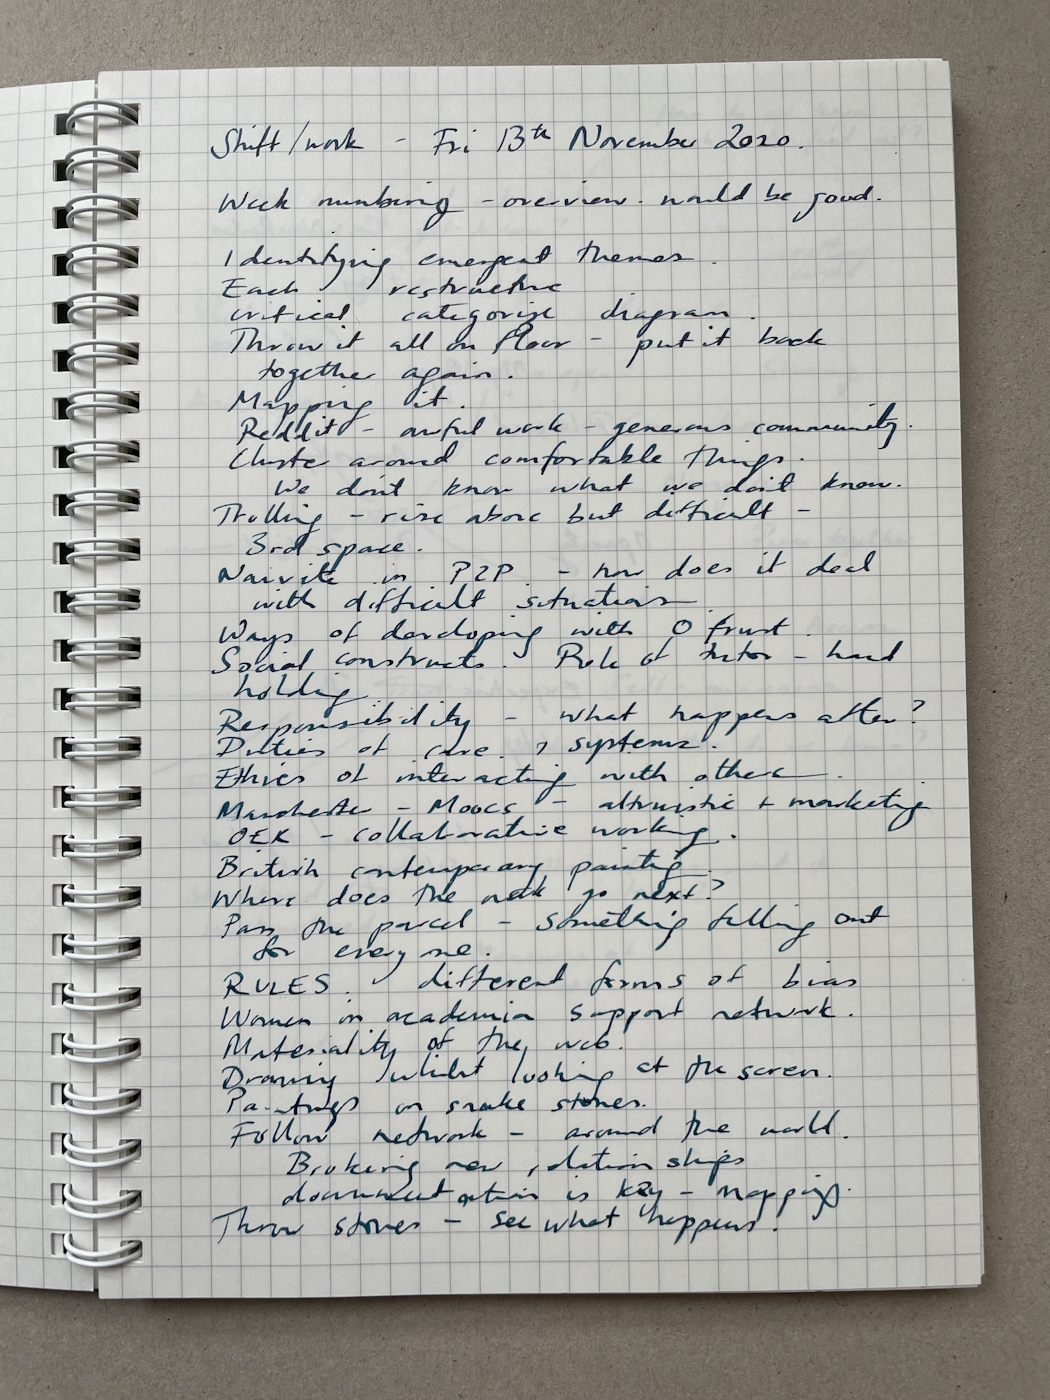 Shift/work - Fri 13th November 2020.
Week numbering - overview. would be good.
Identifying emergent themes.
Each restructure
critical categorize diagram.
Throw it all on floor - put it back
together again.
Mapping it.
Reddit - awful work - generous community.
Cluste around comfortable things.
We don't know what we don't know.
Trolling - rise above but difficult -
3rd space.
Naivite in P2P - how does it deal
with difficult situations
Ways of developing with 0 trust.
Social constructs. Role of tutor - hand
holding
Responsibility - what happens after?
Duties of care. systems.
Ethics of interacting with others.
Manchester - Moocs - altruistic + marketing
OEK - collaborative working.
British contemporary painting.
Where does the go next?
Pass the parcel - something falling out
for every one.
RULES. different forms of bias
Women in academia support network.
Materiality of the web.
Drawing whilst looking at the screen.
Paintings on snake stones.
Follow network - around the world.
Brokering new relationships
documentation is key - mapping.
Throw stones - see what happens.